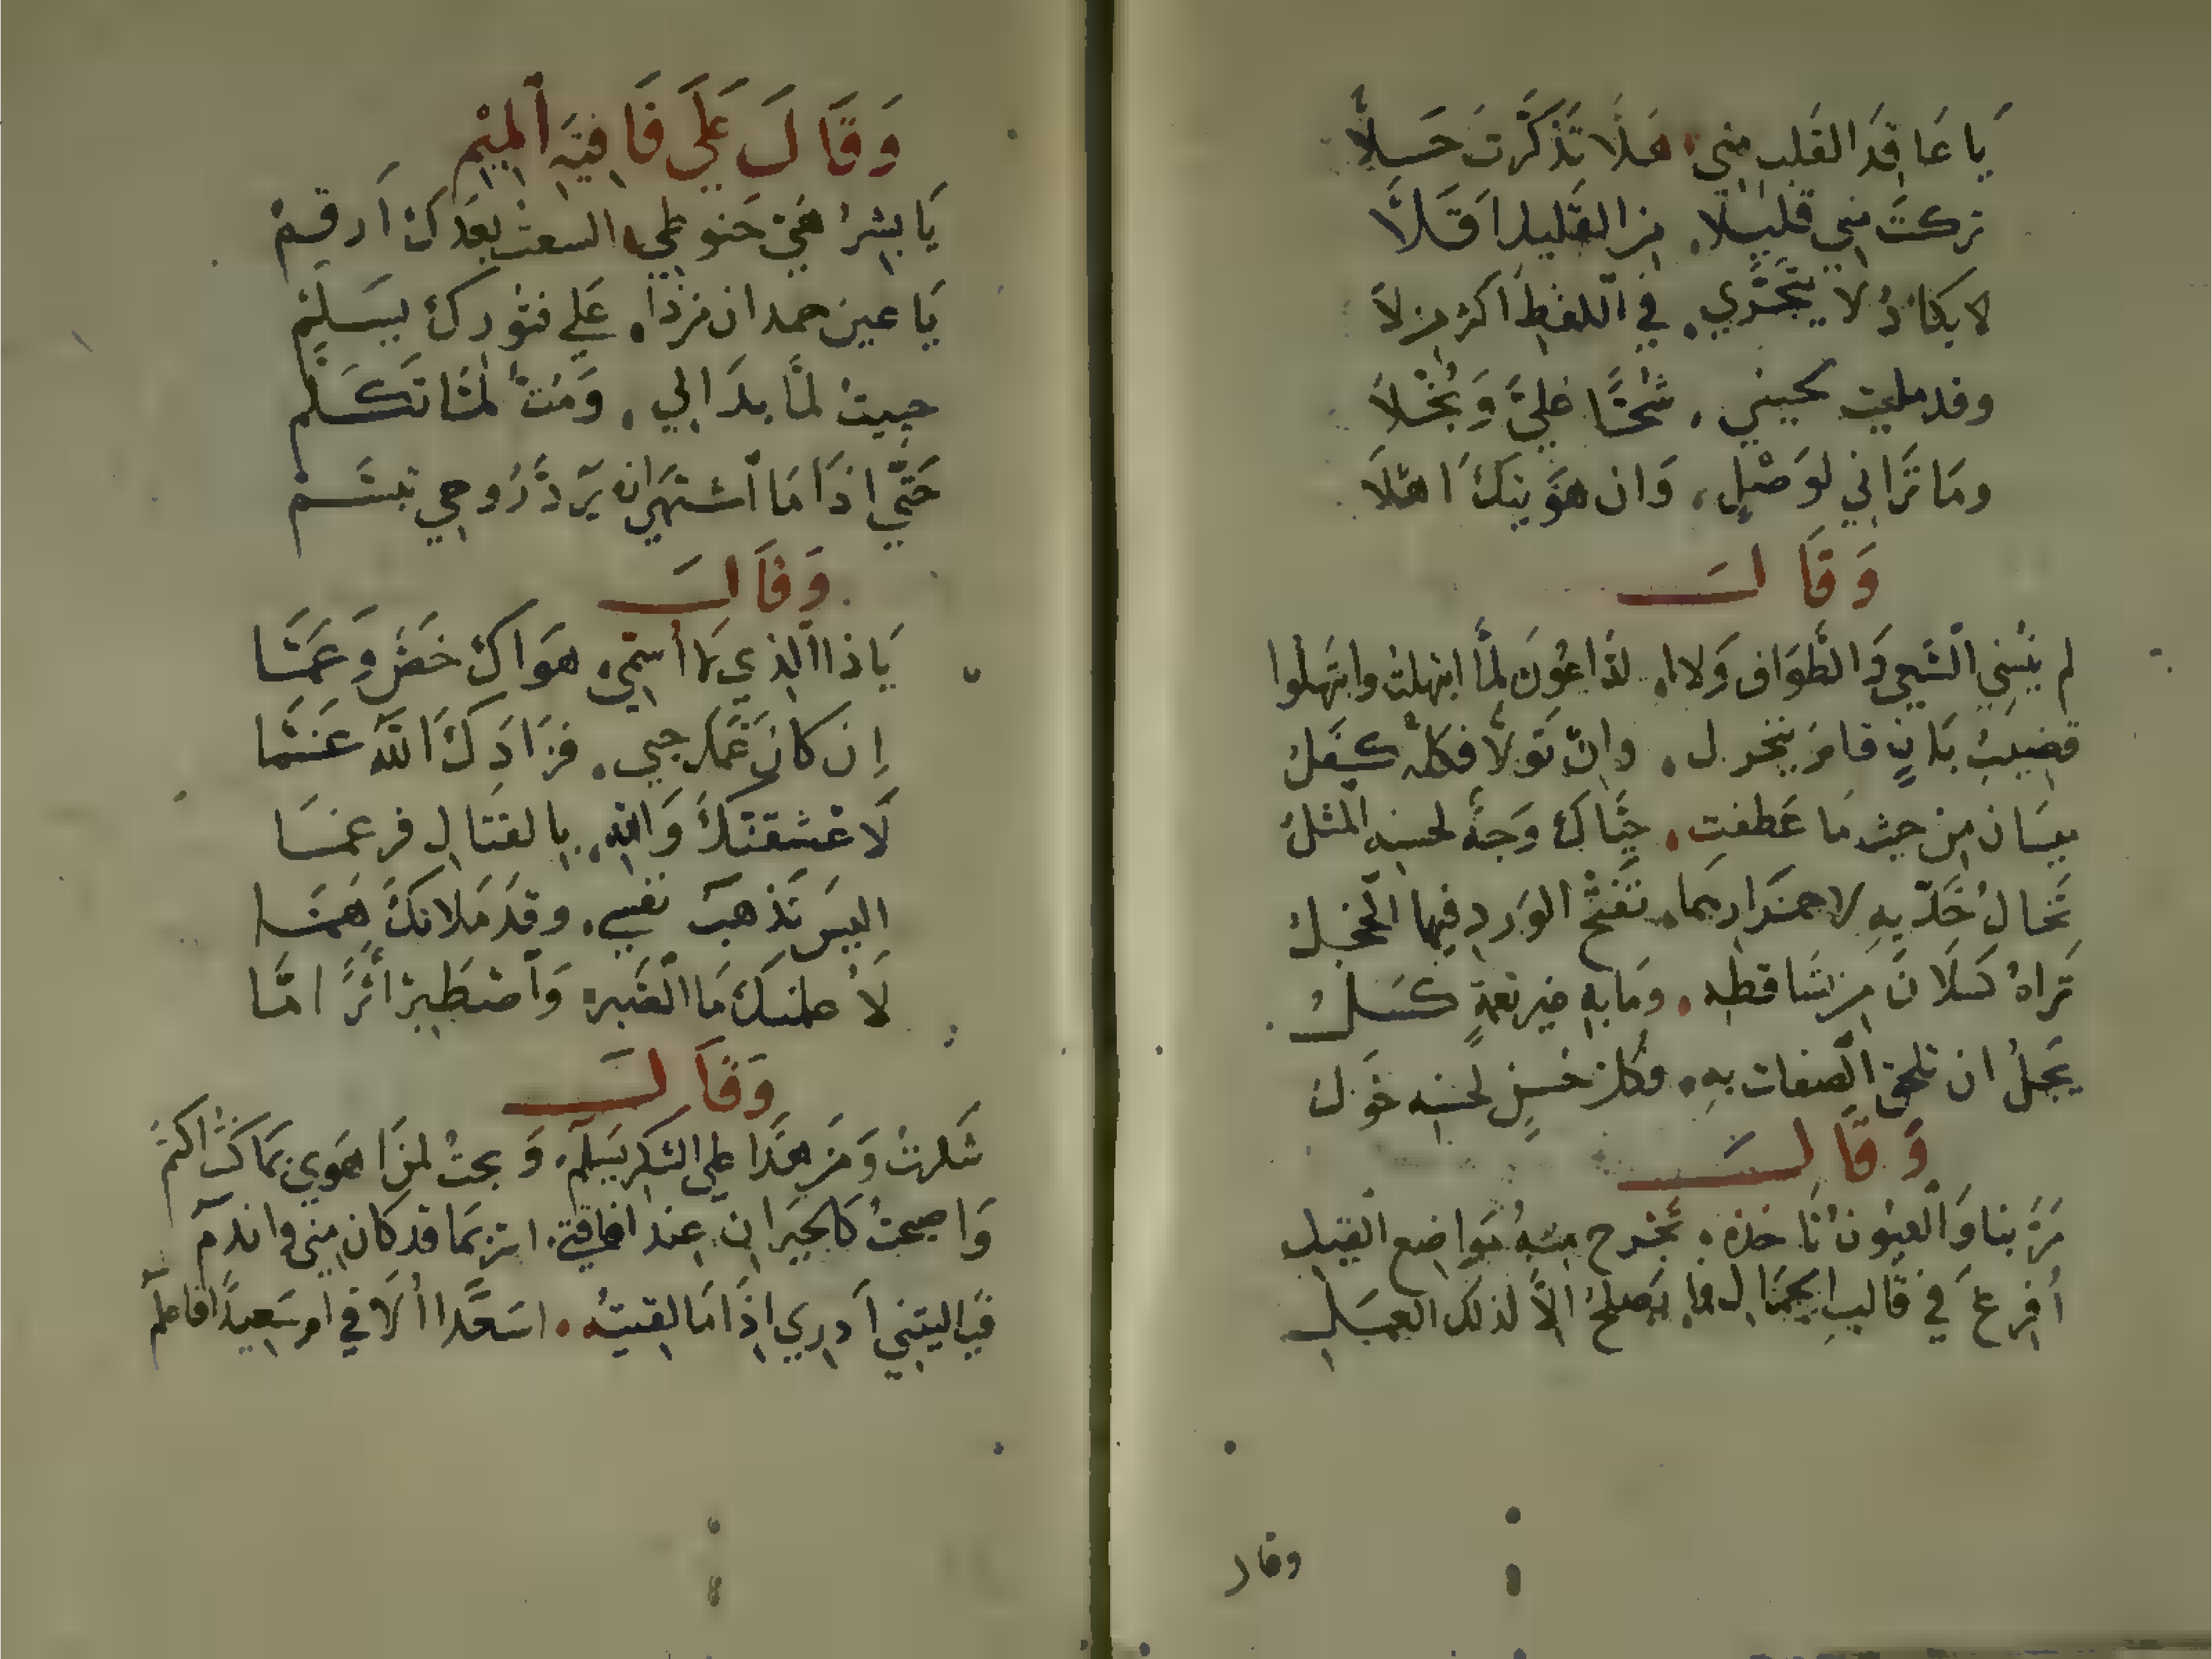 يَا عَاقِدَ القَلبِ مِنِي هَلَّا تَذَكَّرتَ حَلًّا
تركتَ مِني قليلًا من القَليلِ اَقَلَّا
لا يكَادُ لا يَتَجَزَّي في اللفظِ اكثر من لَا
وقد مليت شُحًّا عَليَّ وَبُخْلَا
ومَا تَرَانِي لوَصْلٍ وَان هَوَيتكَ اَهْلَا
وَقَالَ
لم يُنسِنِي السَّعي وَالطَّوَاف وَلا دَاعُونَ لمَّا ابتهلتُ وابتهلوا
قضيبُ بَانٍ وان تولَّا فكلّه كفَلُ
من حيث مَا عَطفتِ حيَّاكَ وَجهٌ لحسنِه المثَلُ
تخَالُ خَدّيهِ لاحمرَارِهمَا تَفتّحَ الوَردِ فيهَا الخجَلُ
تَرَاهُ كسلَانَ من تسَاقطِهِ ومَا بِهِ غير نعمَةٍ كسَلُ
يَجلُّ ان تلحقَ الصفات بِهِ فكلّ حُسنٍ لحسنِه خَوَلُ
وَقَالَ
مَرَّ بنا وَالعيُونُ تَاخذه تجْرح مِنهُ مَوَاضع القبَلِ
اُفرِغَ في قَالبِ الجمَالِ فمَا يَصلحُ اِلّا لذلكَ العمَلِ
وقال
وَقَالَ عَلَي قَافِيَةِ المِيْمِ
يَا بِشرُ السعتُ بعَدَكَ اَرقمْ
يَا عينَ حمدان من ذَا عَلي فتُورِك يسلَمْ
حييتُ لمَّا بدَا لي وَمُتُّ لمَّا تكلّم
حَتّي اذَا مَا اشتهَي ان يَردَّ رُوحِي تبسَّمْ
وَقَالَ
يَا ذَا الّذِي لَا اُسَمّي هَوَاكَ خَصَّ وَعَمَّا
اِن كَانَ غَمَّكَ حبي فزَادَكَ اللهُ غَمَّا
لَا عشقنّكَ وَاللهِ
اليسَ تذهبُ نفسي وقد مَلاتكَ هَمَّا
لَا علمنكَ مَا الصَّبر وَاصطَبِر
وَقَالَ
سَكرتُ وَمَن هذَا علي السّكرِ يَسلَمُ وَبحتُ لمَن اهوَي بمَا كنتُ اكتمُ
وَاصبحتُ كَالحيرَانِ عِندَ افاقتي بمَا قد كان مِني واندمُ
فيَا ليتنِي اَدرِي اِذَا مَا لقِيتُه اسَعدًا اُلاقي ام سَعِيدًا فاعلمُ